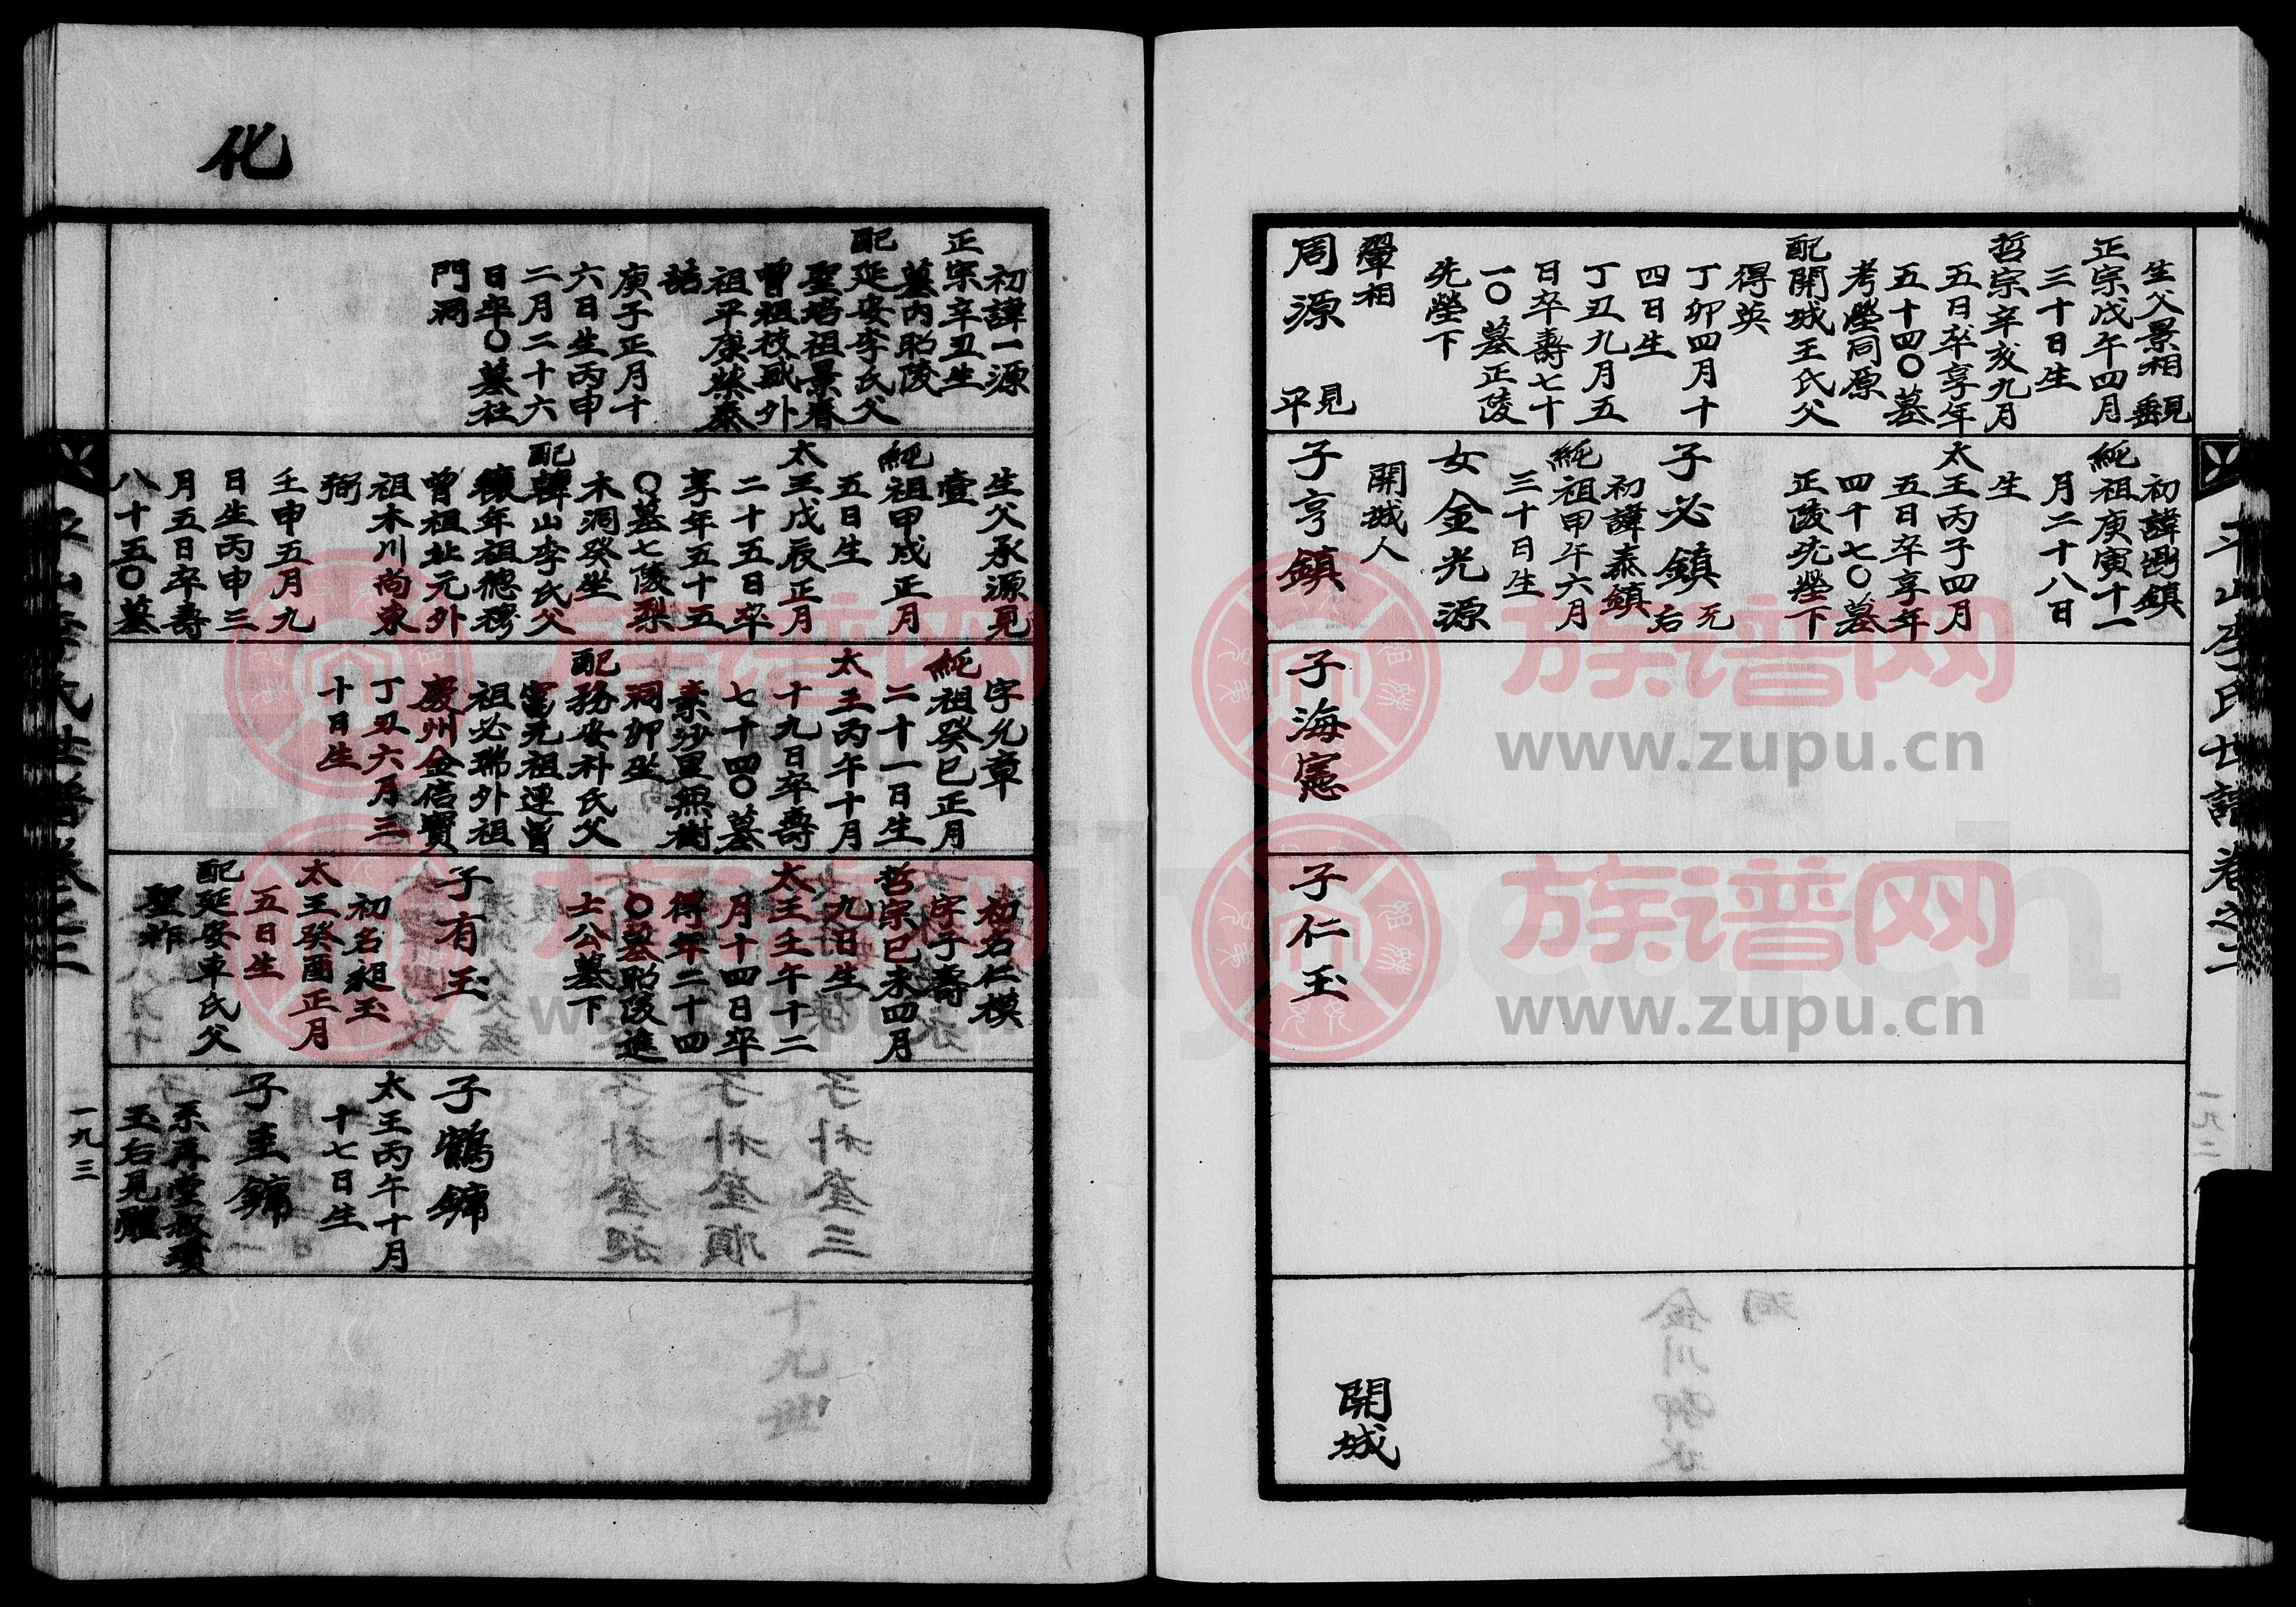 平山李氏世譜卷之二
生父景相見
正宗戊午四月
三十日生
哲宗辛亥九月
五日卒享年
五十四〇墓
考塋同原
配開城王氏父
得英
丁卯四月十
四日生
丁丑九月五
日卒壽七十
一〇墓正陵
先塋下
翬相
周源
見
平
初諱
純祖庚寅十一
月二十八日
生
太王丙子四月
五日卒享年
四十七〇墓
正陵先塋下
子必鎮
元
右
初諱泰鎮
純祖甲午六月
三十日生
女金光源
開城人
子亨鎮
子海憲
子仁玉
開城
化
初諱一源
正宗辛丑生
墓內昭陵
配延安李氏父
聖培祖景春
曾祖枝盛外
祖平康蔡泰
喆
庚子正月十
六日生丙申
二月二十六
日卒〇墓社
門洞
生父承源見
壹
純祖甲戌正月
五日生
太王戊辰正月
二十五日卒
享年五十五
〇墓七陵梨
木洞癸坐
配韓山李氏父
穰年祖德
曾祖址元外
祖木川尚東
弼
壬申五月九
日生丙申三
月五日卒壽
八十五〇墓
字允章
純祖癸巳正月
二十一日生
太王丙午十月
十九日卒壽
七十四〇墓
素沙里無樹
洞卯坐
配務安朴氏父
寬元祖連曾
祖必瑞外祖
慶州金信寶
丁丑六月三
十日生
初名仁模
字子壽
哲宗己未四月
九日生
太王壬午十二
月十四日卒
得年二十四
〇墓昭陵進
士公墓下
子有玉
初名昶玉
太王癸酉正月
五日生
配延安車氏父
聖祚
子鶴鏞
太王丙午十月
十七日生
子圭鏞
系再堂叔
玉右見
平山李氏世譜卷之二
一九三
www.zupu.cn
族谱网
www.zupu.cn
族谱网
www.zupu.cn